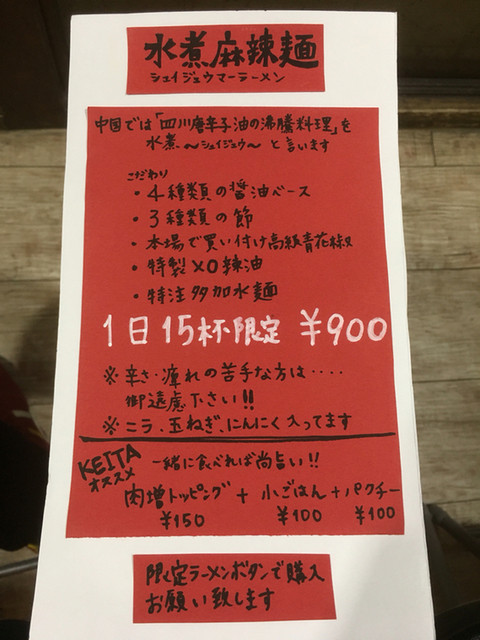 水煮麻辣麺
シェイジュウマーラーメン
中国では「四川唐辛子油の沸騰料理」を
水煮〜シェイジュウ〜と言います
こだわり
・4種類の醤油ベース
・3種類の節
・本場で買い付け高級青花椒
・特製XO辣油
・特注多加水麺
1日15杯限定 ¥900
※辛さ・痺れの苦手な方は‥‥
御遠慮下さい!!
※ニラ、玉ねぎ、にんにく入ってます
KEITA
オススメ
一緒に食べれば尚旨い!!
肉増トッピング + 小ごはん + パクチー
¥150 ¥100 ¥100
限定ラーメンボタンで購入
お願い致します